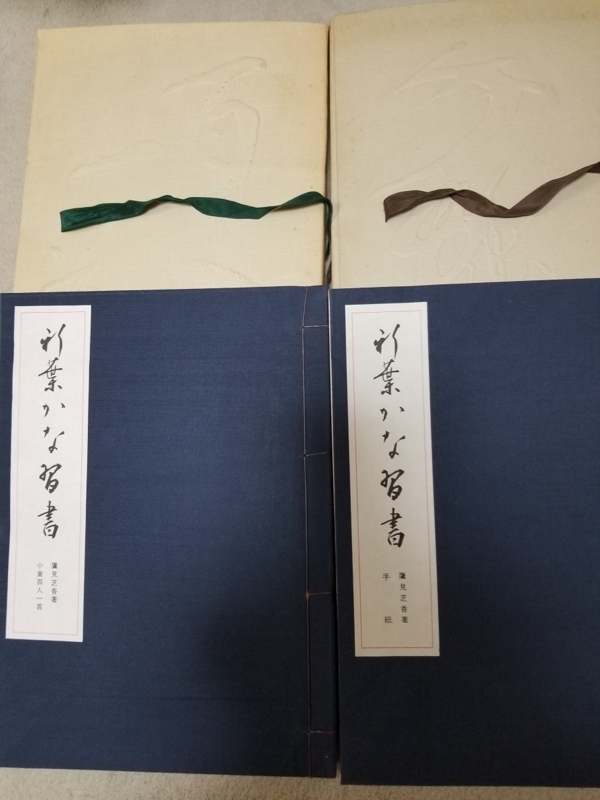 新葉かな習書
鷹見芝香著
小倉百人一首
新葉かな習書
鷹見芝香著
手紙